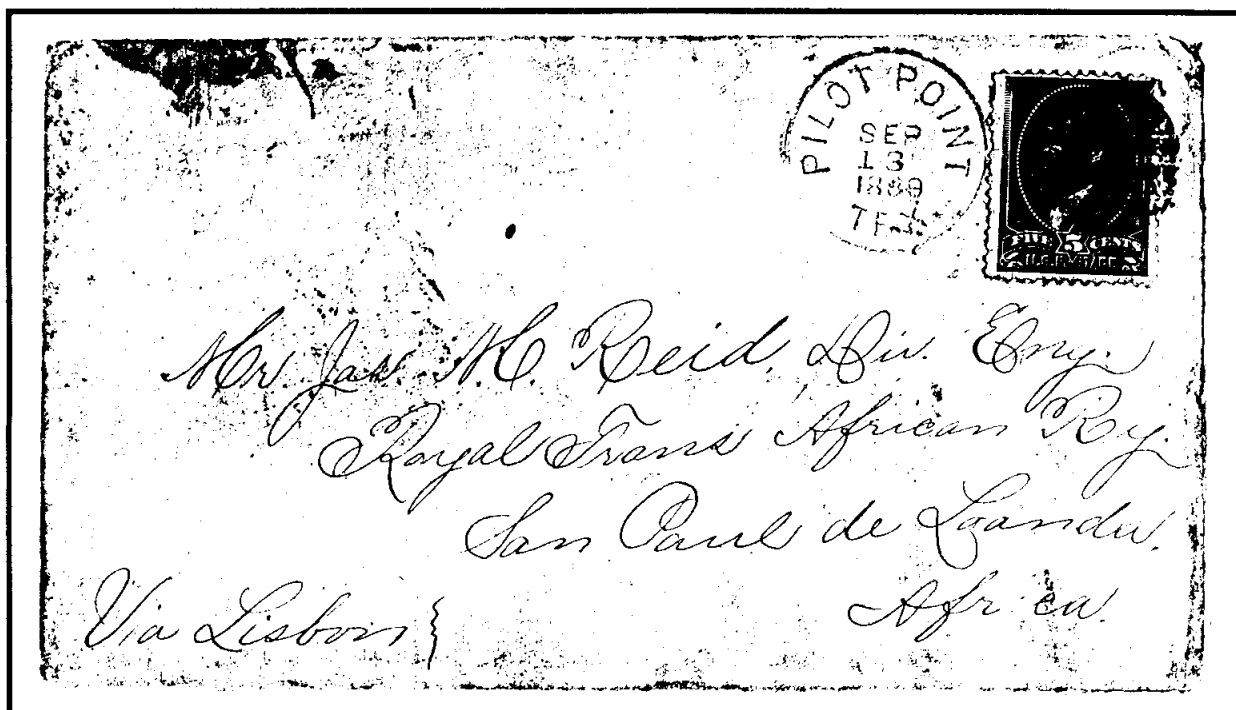 PILOT POINT
SEP
13
1889
TEX
FIVE 5 CENTS
U.S. POSTAGE
Mr. Jas. M. Reid, Div. Eng.
Royal Trans African Ry.
San Paul de Loanda.
Africa.
Via Lisbon